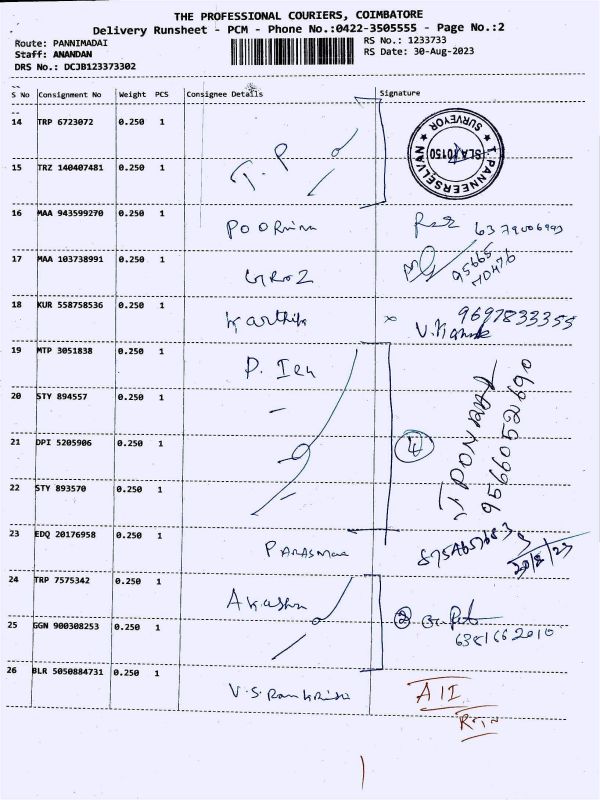 THE PROFESSIONAL COURIERS, COIMBATORE
Delivery Runsheet - PCM - Phone No.:0422-3505555 - Page No.:2
Route: PANNIMADAI
Staff: ANANDAN
DRS No.: DCJB123373302
RS No.: 1233733
RS Date: 30-Aug-2023
S No Consignment No Weight PCS Consignee Details Signature
14 TRP 6723072 0.250 1
T. PANNEERSELVAN
SURVEYOR
15 TRZ 140407481 0.250 1 T.P
16 MAA 943599270 0.250 1 Poornima
17 MAA 103738991 0.250 1
95665
70476
18 KUR 558758536 0.250 1 Karthik x 9697833355
19 MTP 3051838 0.250 1 P.
20 STY 894557 0.250 1
21 DPI 5205906 0.250 1 4
9566052690
22 STY 893570 0.250 1
23 EDQ 20176958 0.250 1
24 TRP 7575342 0.250 1 Akashu
25 GGN 900308253 0.250 1 2
6381662010
26 BLR 5050884731 0.250 1 V.S.